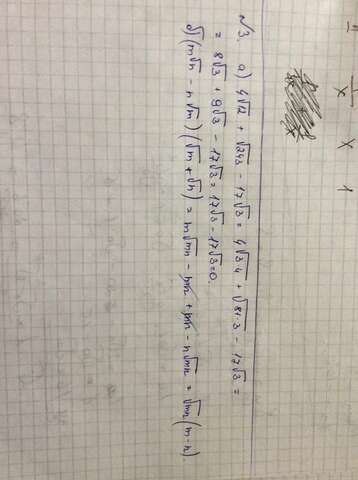 1/x x 1
№3. а) 4√12 + √243 - 17√3 = 4√3·4 + √81·3 - 17√3 =
= 8√3 + 9√3 - 17√3 = 17√3 - 17√3 = 0.
б) (m√n - n√m)(√m + √n) = m√mn - mn + mn - n√mn = √mn(m-n).